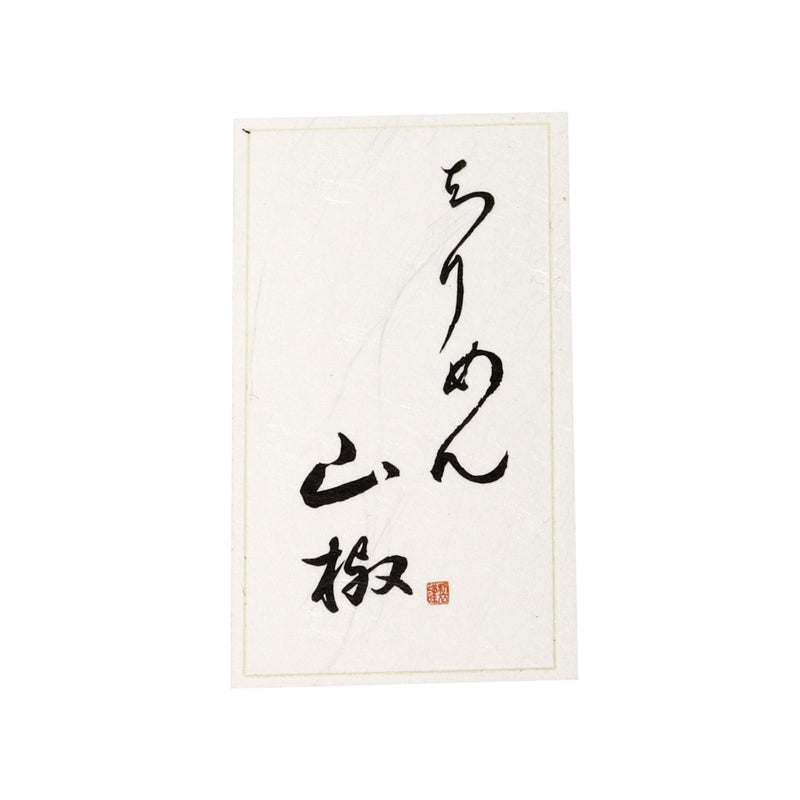 ちりめん
山椒